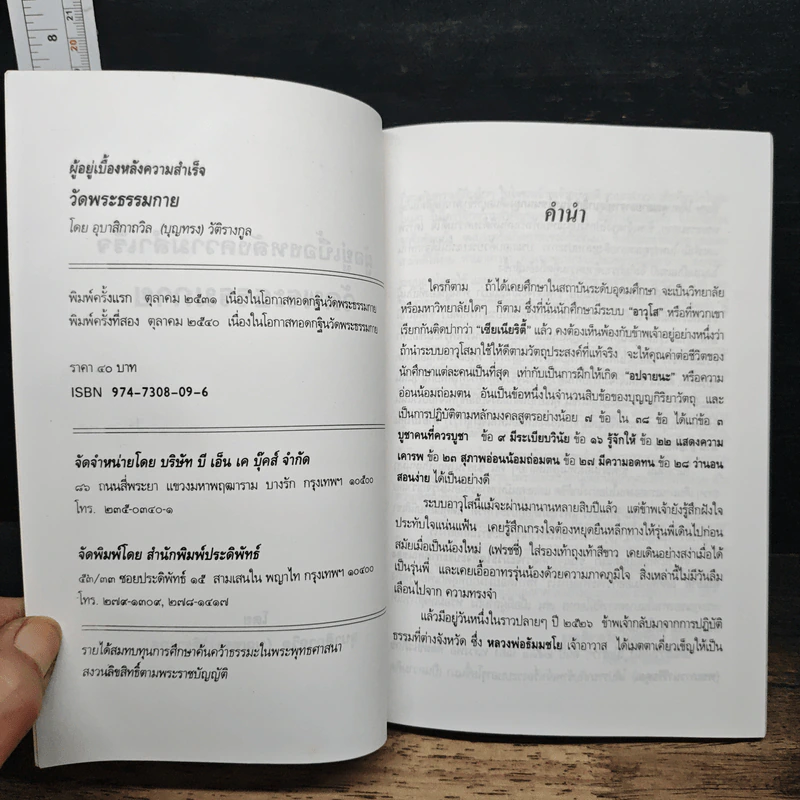 8
21
20
ผู้อยู่เบื้องหลังความสำเร็จ
วัดพระธรรมกาย
โดย อุบาสิกาถวิล (บุญทรง) วัติรางกูล
พิมพ์ครั้งแรก ตุลาคม ๒๕๓๑ เนื่องในโอกาสทอดกฐินวัดพระธรรมกาย
พิมพ์ครั้งที่สอง ตุลาคม ๒๕๔๐ เนื่องในโอกาสทอดกฐินวัดพระธรรมกาย
ราคา ๔๐ บาท
ISBN 974-7308-09-6
จัดจำหน่ายโดย บริษัท บี เอ็น เค บุ๊คส์ จำกัด
๘๖ ถนนสี่พระยา แขวงมหาพฤฒาราม บางรัก กรุงเทพฯ ๑๐๕๐๐
โทร. ๒๓๕-๐๓๔๐-๑
จัดพิมพ์โดย สำนักพิมพ์ประดิพัทธ์
๕๓/๓๓ ซอยประดิพัทธ์ ๑๕ สามเสนใน พญาไท กรุงเทพฯ ๑๐๔๐๐
โทร. ๒๗๙-๑๓๐๙, ๒๗๘-๑๔๑๗
รายได้สมทบทุนการศึกษาค้นคว้าธรรมะในพระพุทธศาสนา
สงวนลิขสิทธิ์ตามพระราชบัญญัติ
คำนำ
ใครก็ตาม ถ้าได้เคยศึกษาในสถาบันระดับอุดมศึกษา จะเป็นวิทยาลัย
หรือมหาวิทยาลัยใดๆ ก็ตาม ซึ่งที่นั่นนักศึกษามีระบบ "อาวุโส" หรือที่พวกเขา
เรียกกันติดปากว่า "เซียเนียริตี้" แล้ว คงต้องเห็นพ้องกับข้าพเจ้าอยู่อย่างหนึ่งว่า
ถ้านำระบบอาวุโสมาใช้ให้ดีตามวัตถุประสงค์ที่แท้จริง จะให้คุณค่าต่อชีวิตของ
นักศึกษาแต่ละคนเป็นที่สุด เท่ากับเป็นการฝึกให้เกิด "อปจายนะ" หรือความ
อ่อนน้อมถ่อมตน อันเป็นข้อหนึ่งในจำนวนสิบข้อของบุญญกิริยาวัตถุ และ
เป็นการปฏิบัติตามหลักมงคลสูตรอย่างน้อย ๗ ข้อ ใน ๓๘ ข้อ ได้แก่ข้อ ๓
บูชาคนที่ควรบูชา ข้อ ๙ มีระเบียบวินัย ข้อ ๑๖ รู้จักให้ ข้อ ๒๒ แสดงความ
เคารพ ข้อ ๒๓ สุภาพอ่อนน้อมถ่อมตน ข้อ ๒๗ มีความอดทน ข้อ ๒๘ ว่านอน
สอนง่าย ได้เป็นอย่างดี
ระบบอาวุโสนี้แม้จะผ่านมานานหลายสิบปีแล้ว แต่ข้าพเจ้ายังรู้สึกฝังใจ
ประทับใจแน่นแฟ้น เคยรู้สึกเกรงใจต้องหยุดยืนหลีกทางให้รุ่นพี่เดินไปก่อน
สมัยเมื่อเป็นน้องใหม่ (เฟรชชี่) ใส่รองเท้าถุงเท้าสีขาว เคยเดินอย่างสง่าเมื่อได้
เป็นรุ่นพี่ และเคยเอื้ออาทรรุ่นน้องด้วยความภาคภูมิใจ สิ่งเหล่านี้ไม่มีวันลืม
เลือนไปจาก ความทรงจำ
แล้วมีอยู่วันหนึ่งในราวปลายๆ ปี ๒๕๒๖ ข้าพเจ้ากลับมาจากการปฏิบัติ
ธรรมที่ต่างจังหวัด ซึ่ง หลวงพ่อธัมมชโย เจ้าอาวาส ได้เมตตาเคี่ยวเข็ญให้เป็น